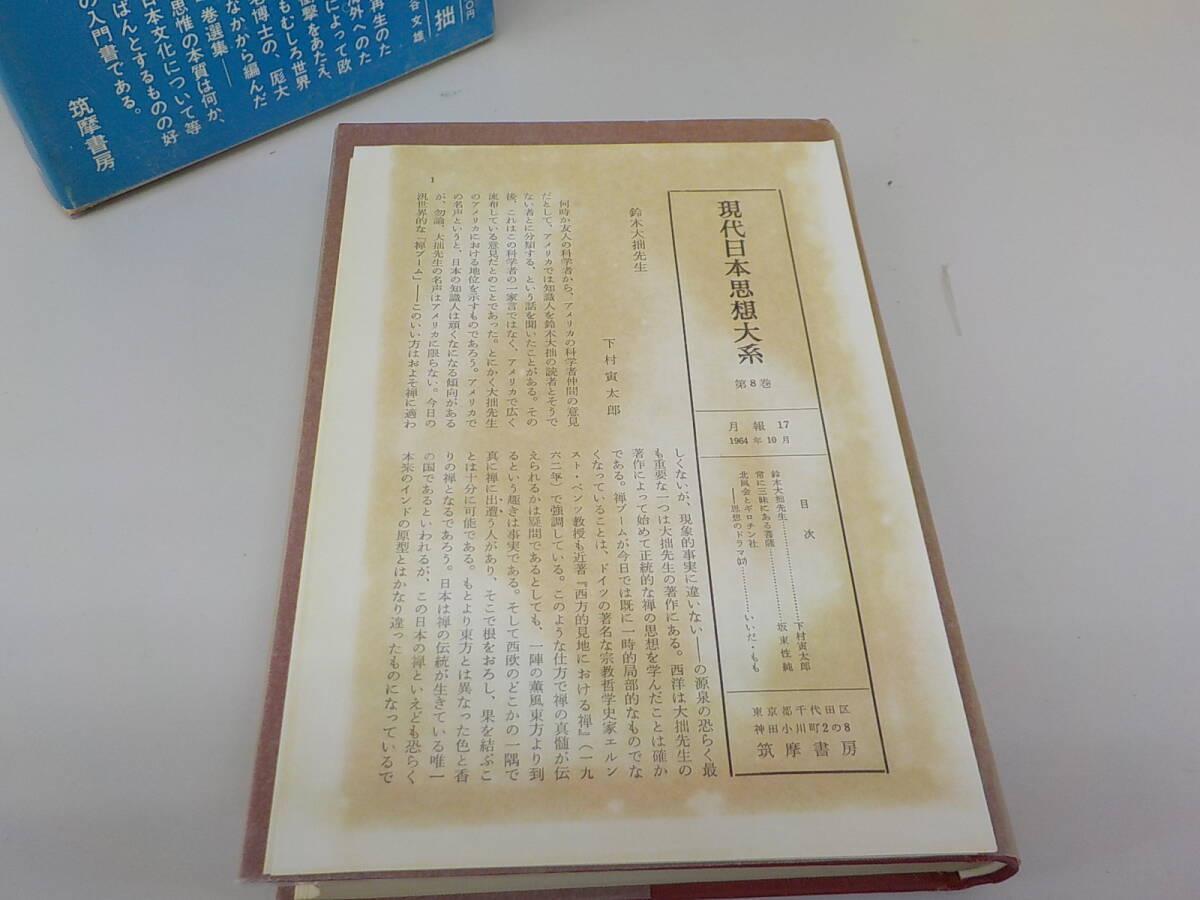 現代日本思想大系
第8巻
月報17
1964年10月
目次
鈴木大拙先生……………………下村寅太郎
常に三昧にある菩薩……………坂東性純
北風会とギロチン社
――思想のドラマ⒄…………いいだ・もも
東京都千代田区
神田小川町2の8
筑摩書房
鈴木大拙先生
下村寅太郎
何時か友人の科学者から、アメリカの科学者仲間の意見
だとして、アメリカでは知識人を鈴木大拙の読者とそうで
ない者とに分類する、という話を聞いたことがある。その
後、これはこの科学者の一家言ではなく、アメリカで広く
流布している意見だとのことであった。とにかく大拙先生
のアメリカにおける地位を示すものであろう。アメリカで
の名声というと、日本の知識人は頑くなになる傾向がある
が、勿論、大拙先生の名声はアメリカに限らない。今日の
汎世界的な「禅ブーム」――このいい方はおよそ禅に適わ
しくないが、現象的事実に違いない――の源泉の恐らく最
も重要な一つは大拙先生の著作にある。西洋は大拙先生の
著作によって始めて正統的な禅の思想を学んだことは確か
である。禅ブームが今日では既に一時的局部的なものでな
くなっていることは、ドイツの著名な宗教哲学史家エルン
スト・ベンツ教授も近著『西方的見地における禅』（一九
六二年）で強調している。このような仕方で禅の真髄が伝
えられるかは疑問であるとしても、一陣の薫風東方より到
るという趣きは事実である。そして西欧のどこかの一隅で
真に禅に出遭う人があり、そこで根をおろし、果を結ぶこ
とは十分に可能である。もとより東方とは異なった色と香
りの禅となるであろう。日本は禅の伝統が生きている唯一
の国であるといわれるが、この日本の禅といえども恐らく
本来のインドの原型とはかなり違ったものになっているで
1
拙
谷文雄
再生のた
海外へのた
によって欧
衝撃をあたえ、
もむしろ世界
博士の、厖大
なかから編んだ
巻選集――
思惟の本質は何か、
日本文化について等
ばんとするものの好
の入門書である。
筑摩書房